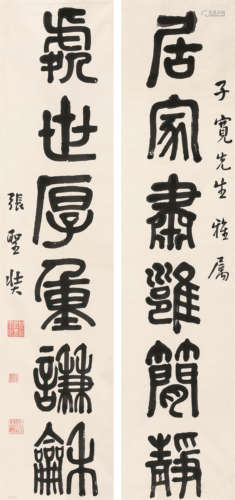 子寬先生雅屬
居家肅雝簡靜
處世厚重謙龢
張聖奘